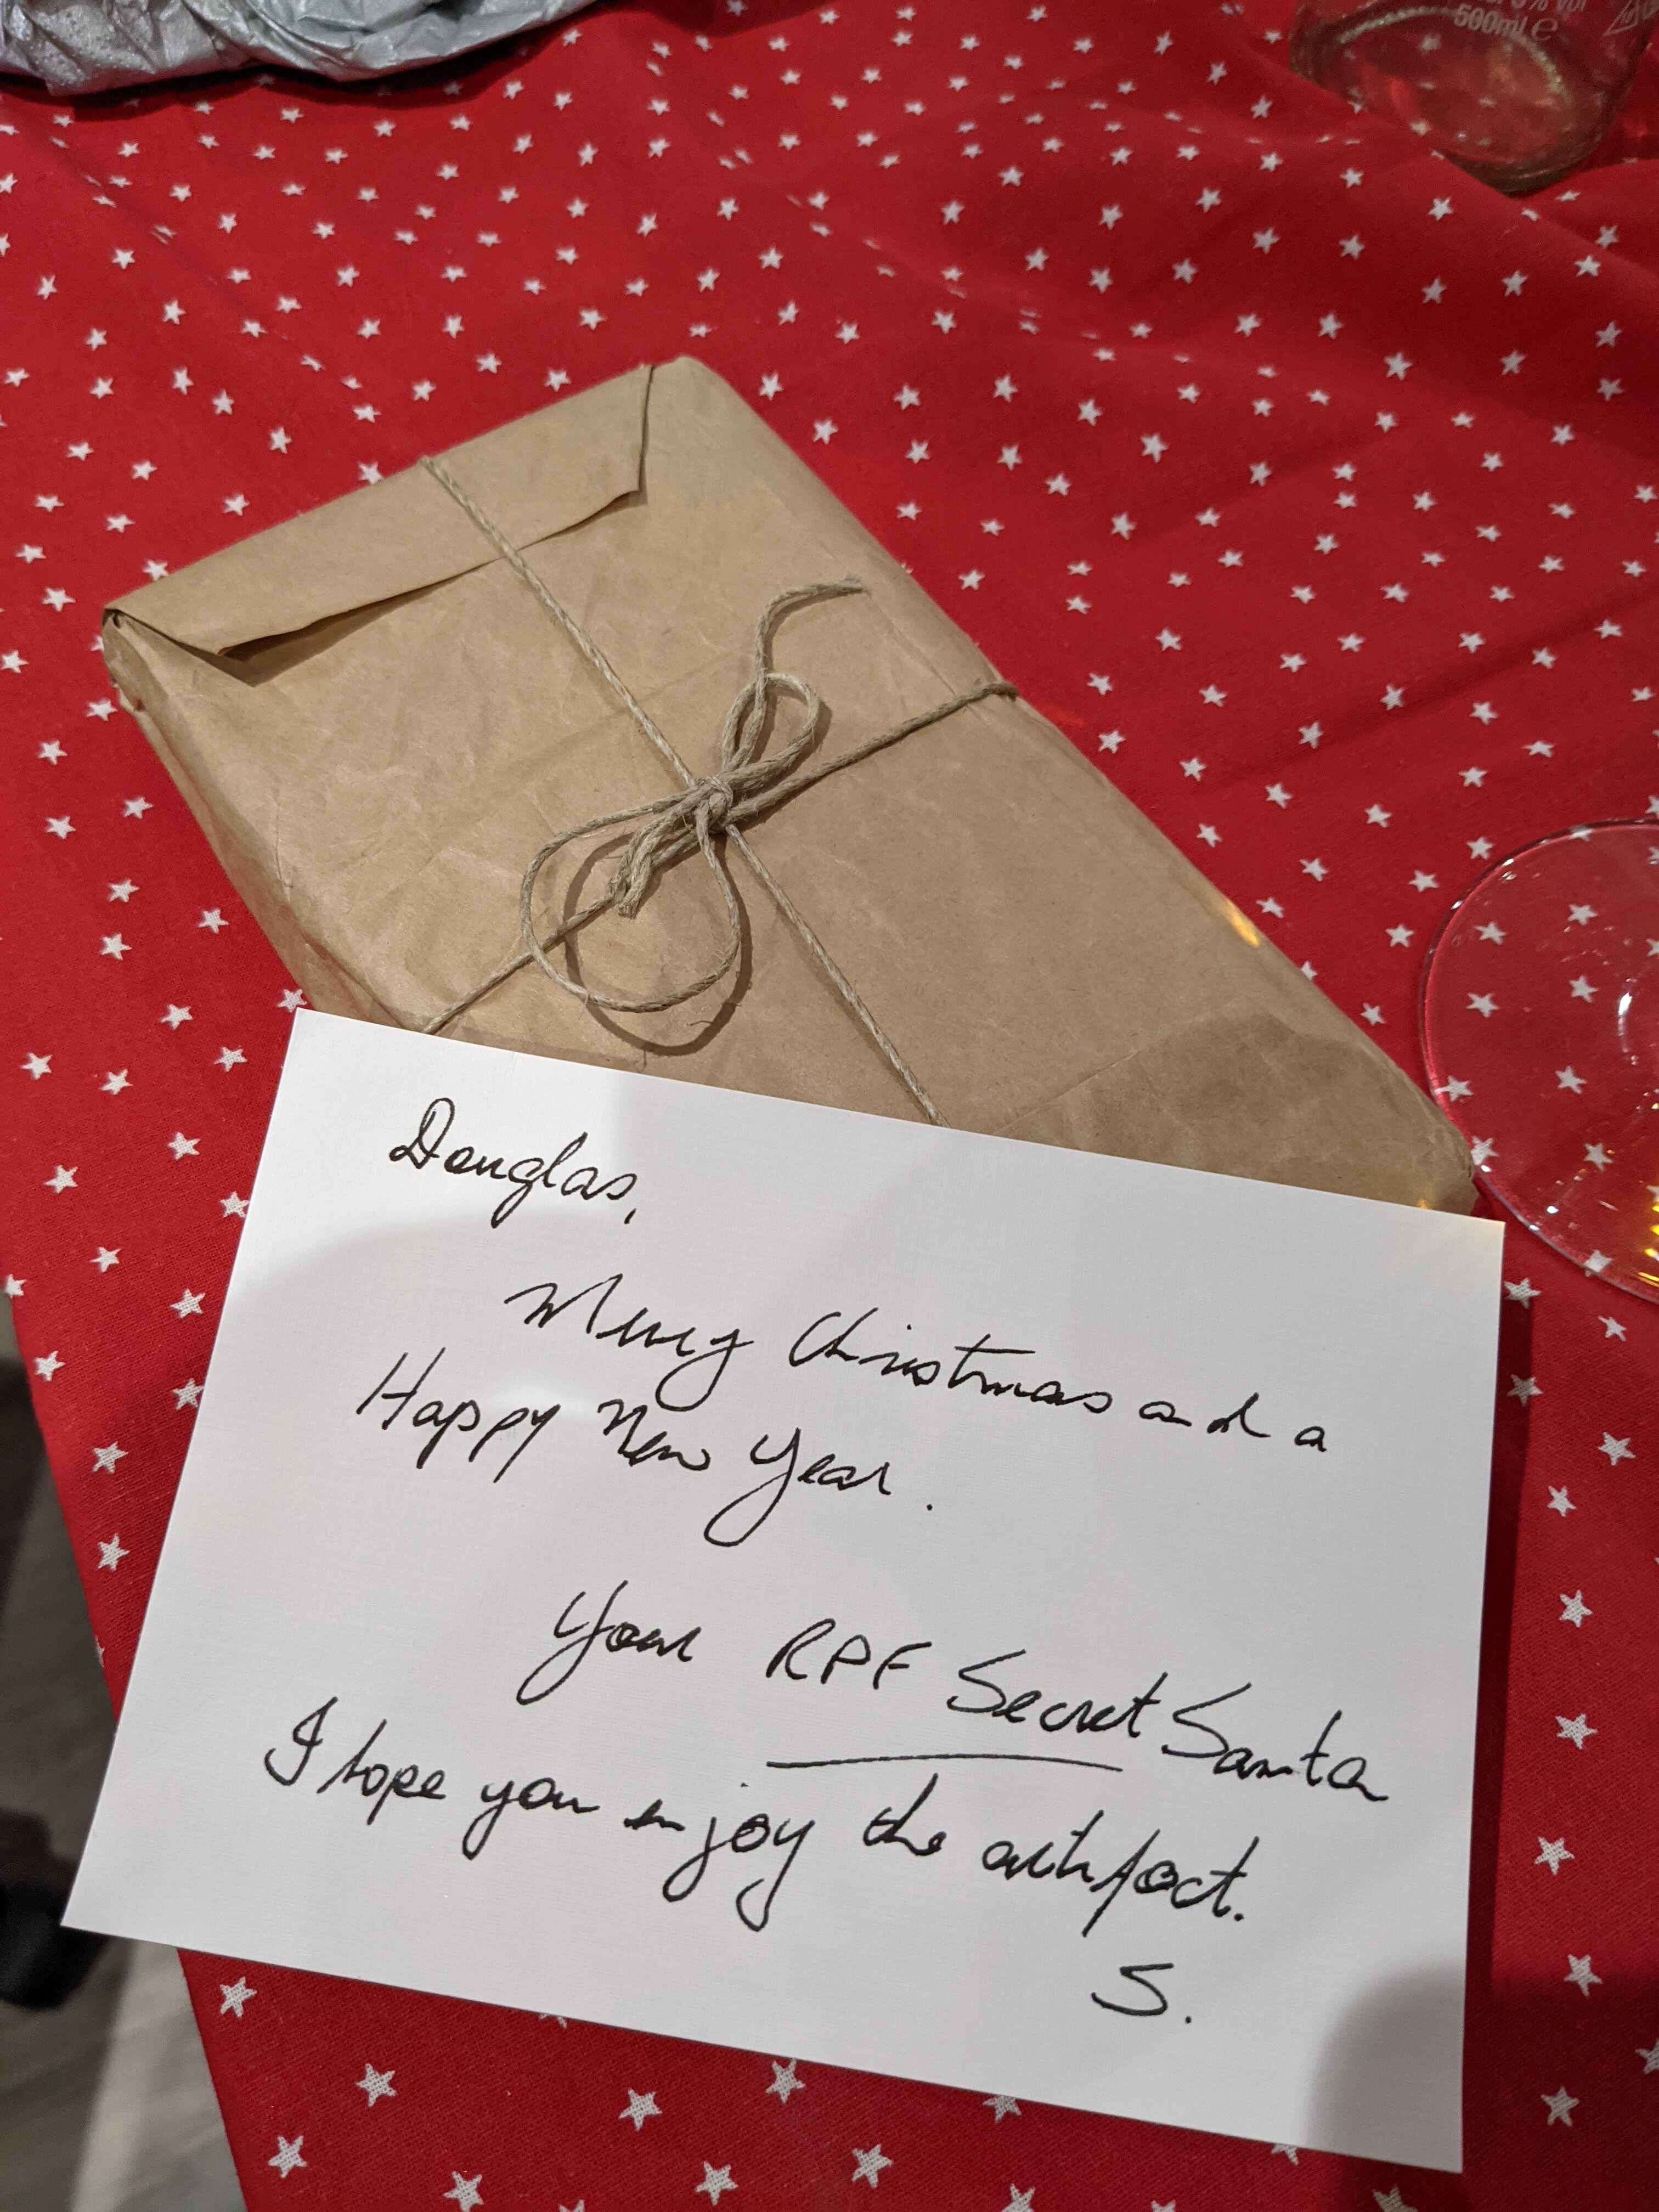 500ml ℮
Douglas,
Merry Christmas and a
Happy New Year.
Your RPF Secret Santa
I hope you enjoy the artifact.
S.